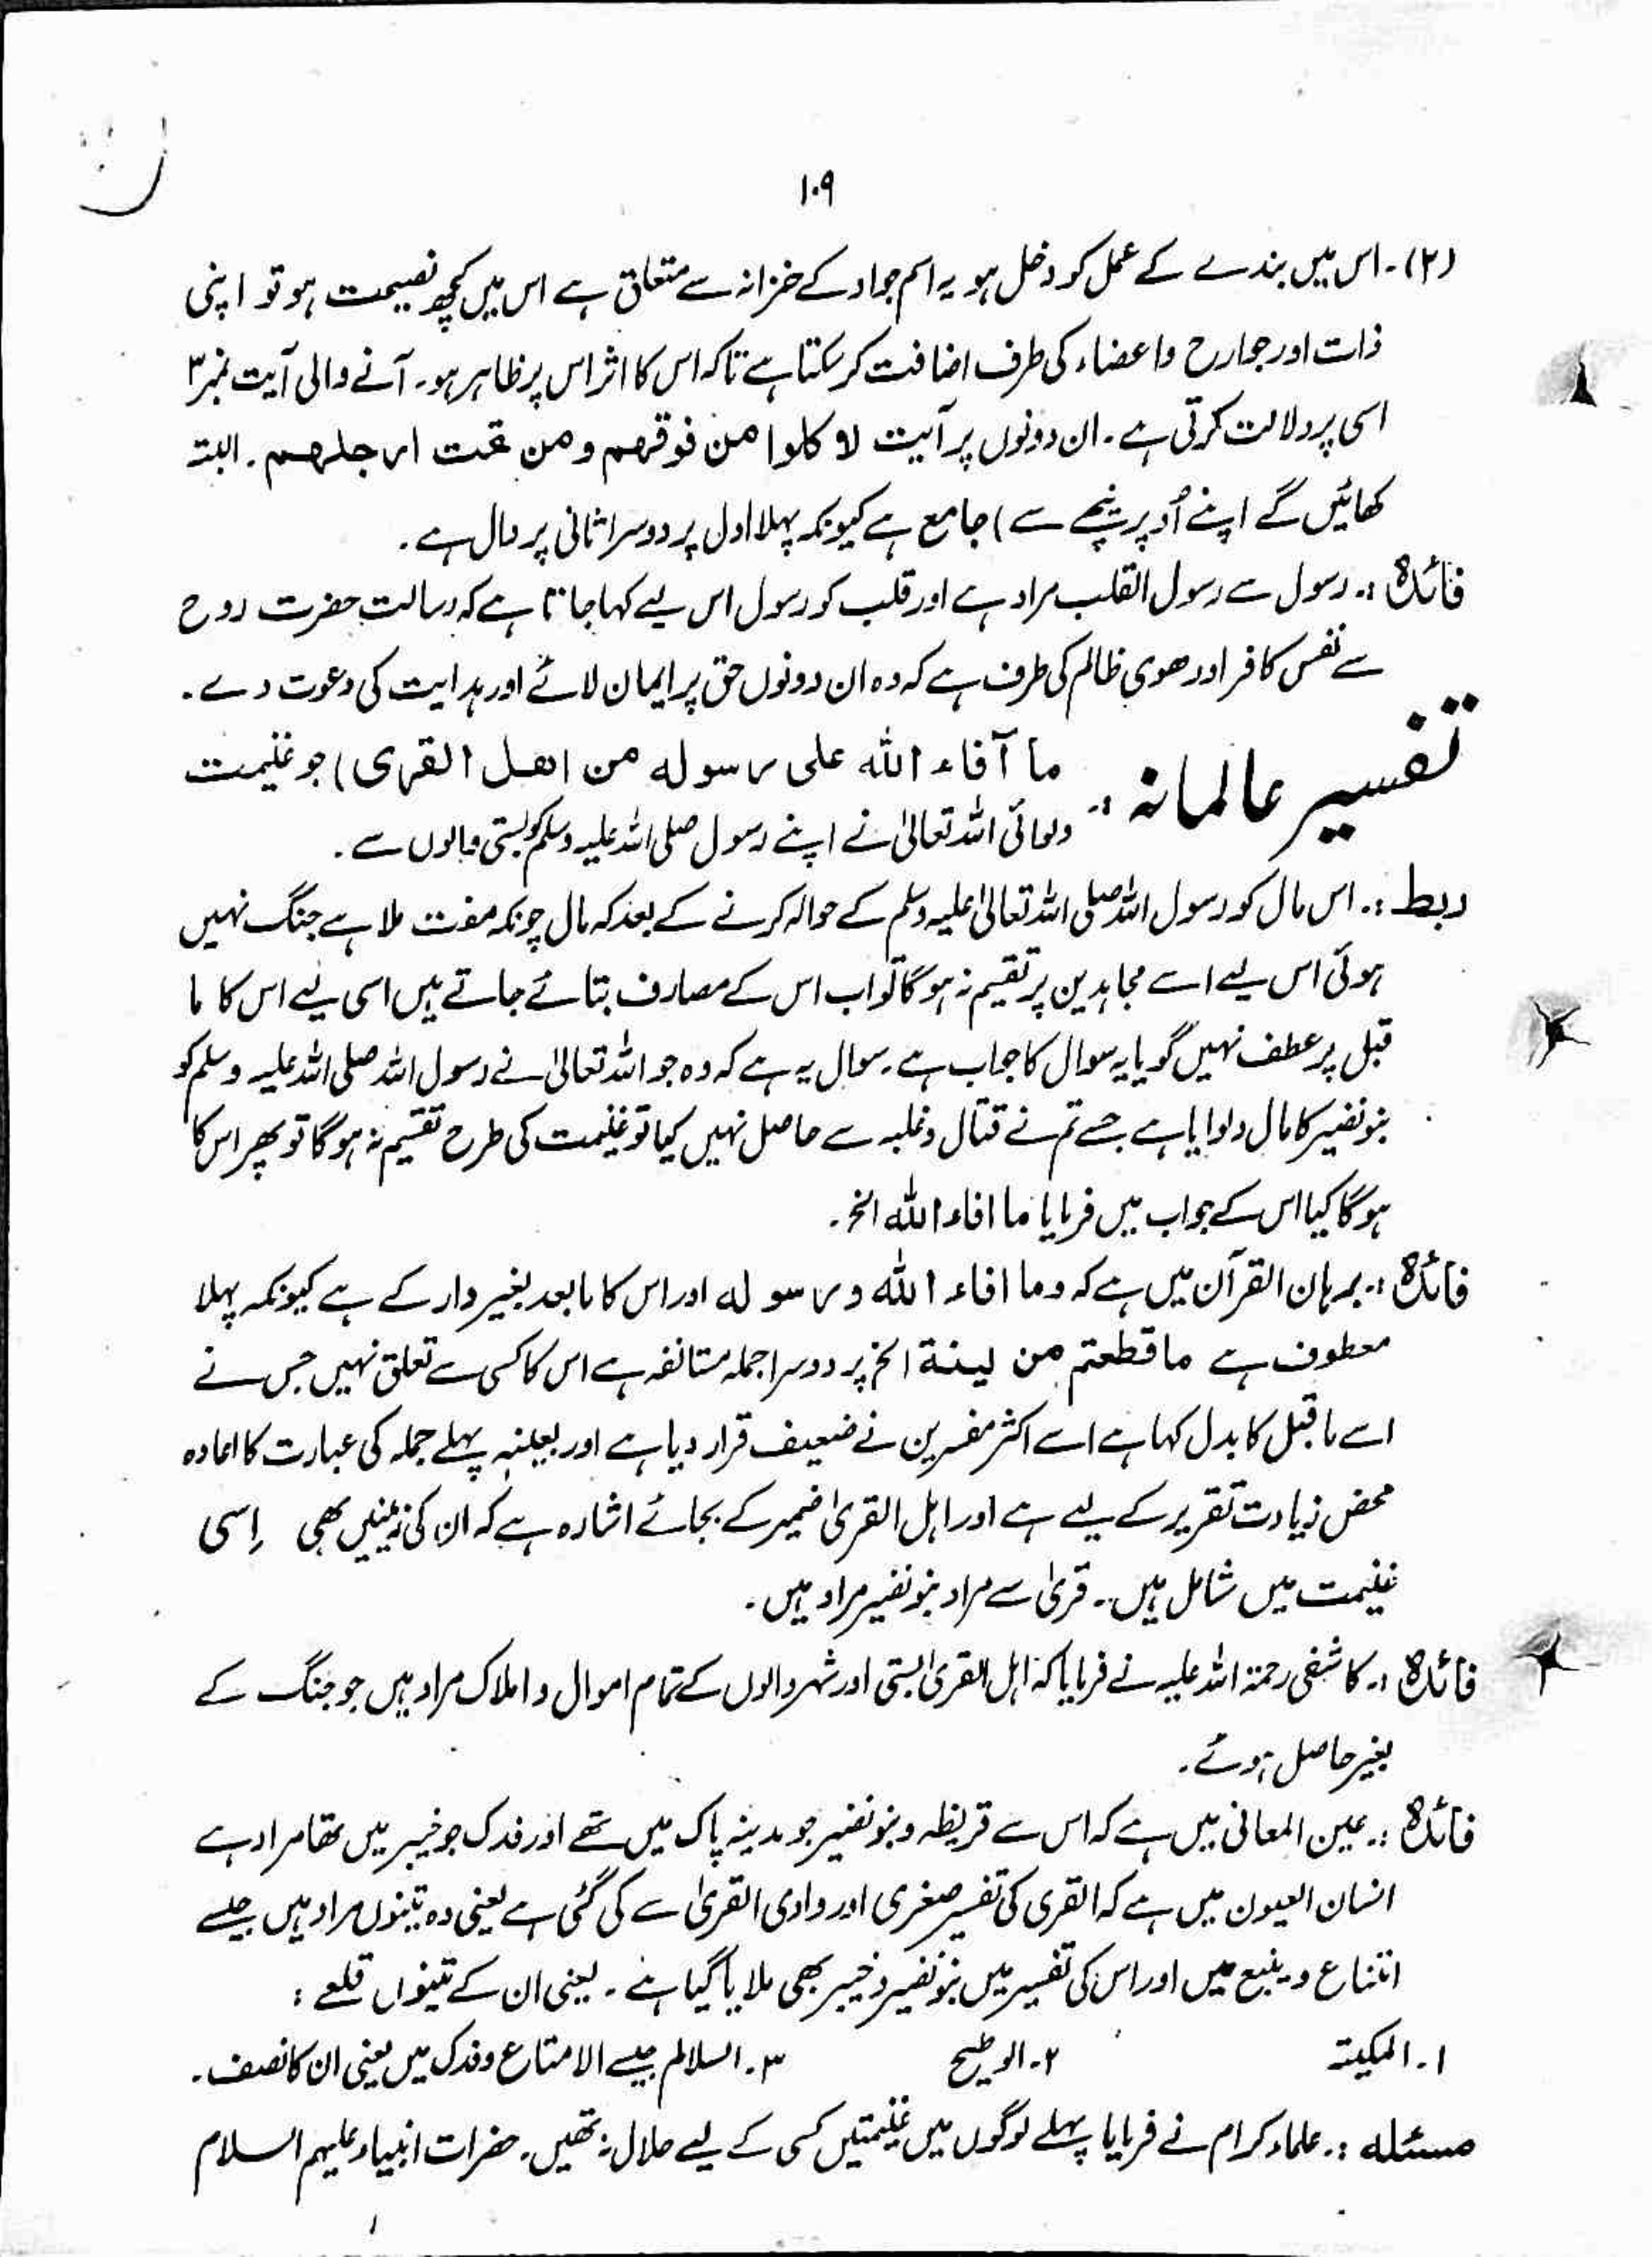 ۱۰۹
(۲)۔ اس میں بندے کے عمل کو دخل ہو یہ اسم جواد کے خزانہ سے متعلق ہے اس میں کچھ نصیحت ہو تو اپنی
ذات اور جوارح و اعضاء کی طرف اضافت کر سکتا ہے تاکہ اس کا اثر اس پر ظاہر ہو۔ آنے والی آیت نمبر ۳
اسی پر دلالت کرتی ہے۔ ان دونوں پر آیت لا کلوا من فوقھم و من تحت ارجلھم۔ البتہ
کھائیں گے اپنے اُوپر نیچے سے) جامع ہے کیونکہ پہلا اول پر دوسرا ثانی پر دال ہے۔
فائدہ :۔ رسول سے رسول القلب مراد ہے اور قلب کو رسول اس لیے کہا جاتا ہے کہ رسالت حضرت روح
سے نفس کافر اور ھوی ظالم کی طرف ہے کہ وہ ان دونوں حق پر ایمان لائے اور ہدایت کی دعوت دے۔
تفسیر عالمانہ :۔ ما آفاء اللہ علی رسولہ من اھل القری) جو غنیمت
دلوائی اللہ تعالیٰ نے اپنے رسول صلی اللہ علیہ وسلم کو بستی والوں سے۔
ربط :۔ اس مال کو رسول اللہ صلی اللہ تعالیٰ علیہ وسلم کے حوالہ کرنے کے بعد کہ مال چونکہ مفت ملا ہے جنگ نہیں
ہوئی اس لیے اسے مجاہدین پر تقیم نہ ہو گا تو اب اس کے مصارف بتائے جاتے ہیں اسی لیے اس کا ما
قبل پر عطف نہیں گویا یہ سوال کا جواب ہے۔ سوال یہ ہے کہ وہ جو اللہ تعالیٰ نے رسول اللہ صلی اللہ علیہ وسلم کو
بنو نضیر کا مال دلوایا ہے جسے تم نے قتال و غلبہ سے حاصل نہیں کیا تو غنیمت کی طرح تقسیم نہ ہو گا تو پھر اس کا
ہو گا کیا اس کے جواب میں فرمایا ما افاء اللہ الخ۔
فائدہ :۔ برہان القرآن میں ہے کہ وما افاء اللہ و رسولہ اور اس کا مابعد بغیر واو کے ہے کیونکہ پہلا
معطوف ہے ما قطعتم من لینۃ الخ پر دوسرا جملہ مستانفہ ہے اس کا کسی سے تعلق نہیں جس نے
اسے ماقبل کا بدل کہا ہے اسے اکثر مفسرین نے ضعیف قرار دیا ہے اور بعینہٖ پہلے جملہ کی عبارت کا اعادہ
محض زیادت تقریر کے لیے ہے اور اہل القریٰ ضمیر کے بجائے اشارہ ہے کہ ان کی زمینیں بھی اِسی
غنیمت میں شامل ہیں۔ قریٰ سے مراد بنو نضیر مراد ہیں۔
فائدہ :۔ کاشفی رحمۃ اللہ علیہ نے فرمایا کہ اہل القریٰ بستی اور شہر والوں کے تمام اموال و املاک مراد ہیں جو جنگ کے
بغیر حاصل ہوئے۔
فائدہ :۔ عین المعانی میں ہے کہ اس سے قریظہ و بنو نضیر جو مدینہ پاک میں تھے اور فدک جو خیبر میں تھا مراد ہے
انسان العیون میں ہے کہ القری کی تفسیر صغری اور وادی القریٰ سے کی گئی ہے یعنی وہ تینوں مراد ہیں جیسے
انتاع و ینبع میں اور اس کی تفسیر میں بنو نضیر و خیبر بھی ملایا گیا ہے۔ یعنی ان کے تینوں قلعے :
۱۔ المکیتہ ۲۔ الوطیح ۳۔ السلالم جیسے الامتاع و فدک میں یعنی ان کا نصف۔
مسئلہ :۔ علماء کرام نے فرمایا پہلے لوگوں میں غنیمتیں کسی کے لیے حلال نہ تھیں۔ حضرات انبیاء علیہم السلام